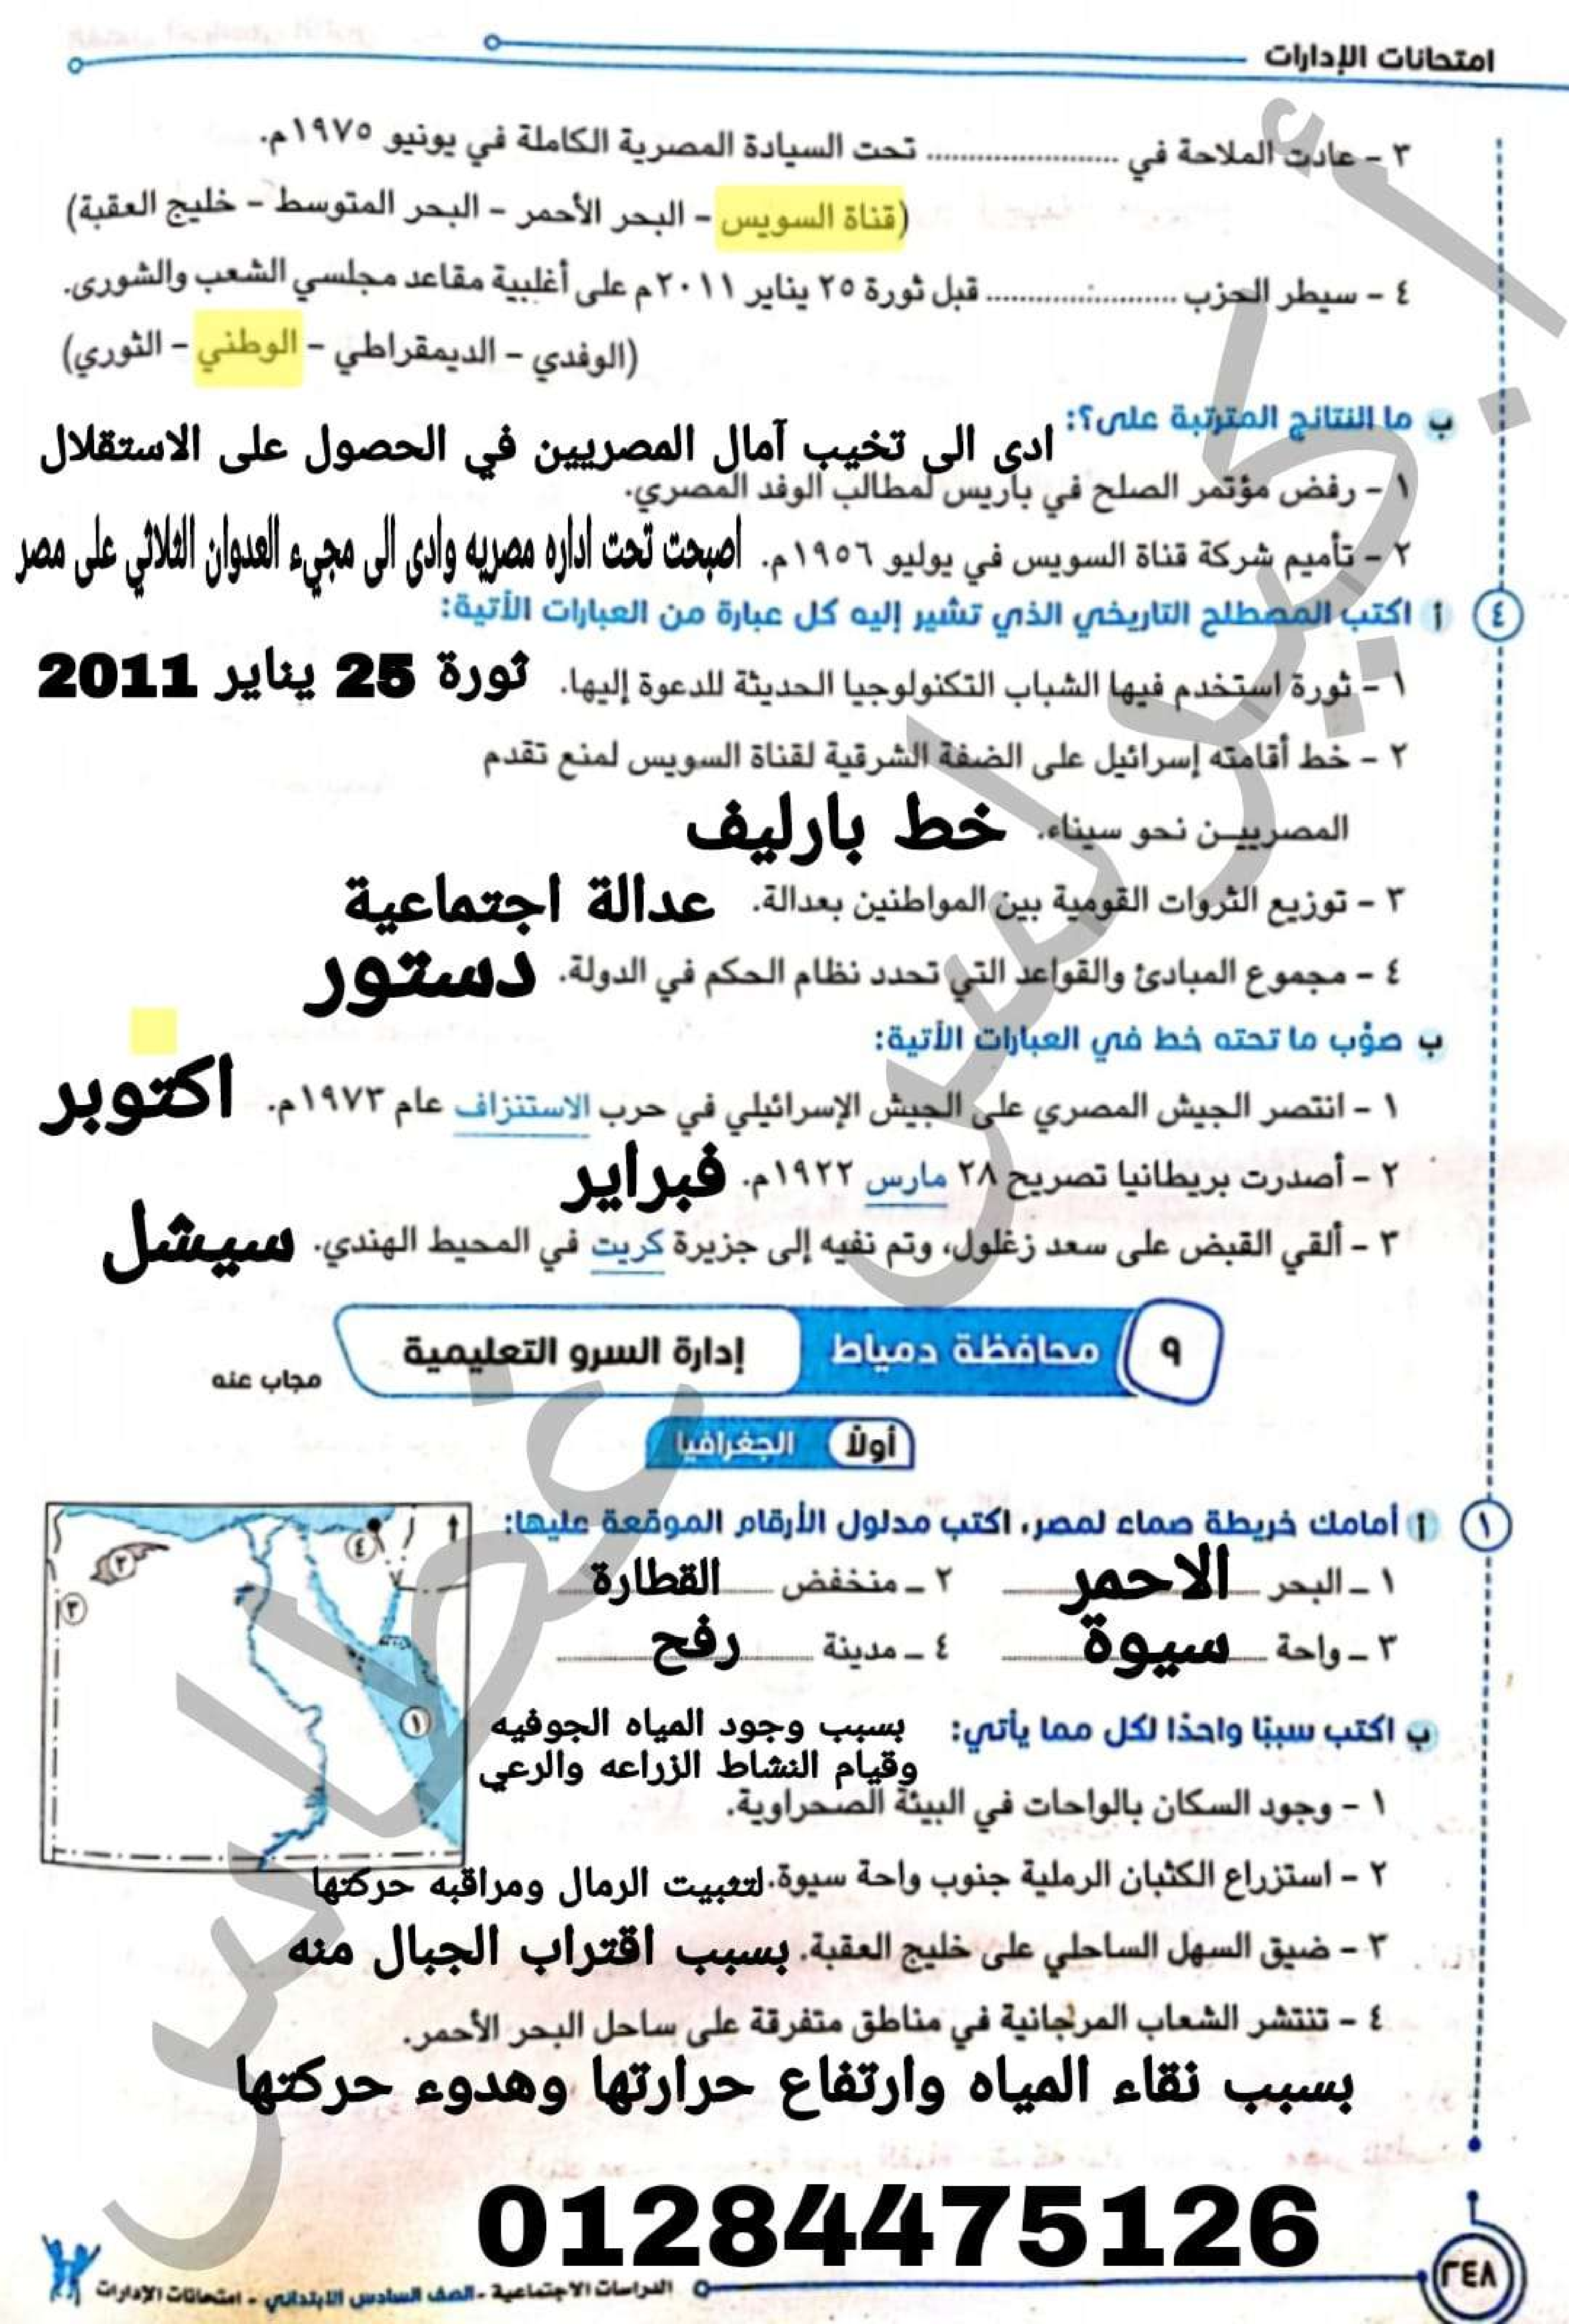 امتحانات الإدارات
٣ - عادت الملاحة في .................... تحت السيادة المصرية الكاملة في يونيو ١٩٧٥م.
(قناة السويس - البحر الأحمر - البحر المتوسط - خليج العقبة)
٤ - سيطر الحزب .................... قبل ثورة ٢٥ يناير ٢٠١١م على أغلبية مقاعد مجلسي الشعب والشورى.
(الوفدي - الديمقراطي - الوطني - الثوري)
ب ما النتائج المترتبة على؟: ادى الى تخيب آمال المصريين في الحصول على الاستقلال
١ - رفض مؤتمر الصلح في باريس لمطالب الوفد المصري.
٢ - تأميم شركة قناة السويس في يوليو ١٩٥٦م. اصبحت تحت اداره مصريه وادى الى مجيء العدوان الثلاثي على مصر
٤ أ اكتب المصطلح التاريخي الذي تشير إليه كل عبارة من العبارات الأتية:
١ - ثورة استخدم فيها الشباب التكنولوجيا الحديثة للدعوة إليها. ثورة 25 يناير 2011
٢ - خط أقامته إسرائيل على الضفة الشرقية لقناة السويس لمنع تقدم
المصريين نحو سيناء. خط بارليف
٣ - توزيع الثروات القومية بين المواطنين بعدالة. عدالة اجتماعية
٤ - مجموع المبادئ والقواعد التي تحدد نظام الحكم في الدولة. دستور
ب صوّب ما تحته خط في العبارات الأتية:
١ - انتصر الجيش المصري على الجيش الإسرائيلي في حرب الاستنزاف عام ١٩٧٣م. اكتوبر
٢ - أصدرت بريطانيا تصريح ٢٨ مارس ١٩٢٢م. فبراير
٣ - ألقي القبض على سعد زغلول، وتم نفيه إلى جزيرة كريت في المحيط الهندي. سيشل
٩ محافظة دمياط إدارة السرو التعليمية
مجاب عنه
أولاً الجغرافيا
١ أ أمامك خريطة صماء لمصر، اكتب مدلول الأرقام الموقعة عليها:
١ ـ البحر الاحمر ٢ ـ منخفض القطارة
٣ ـ واحة سيوة ٤ ـ مدينة رفح
٤
٢
٣
١
ب اكتب سببًا واحدًا لكل مما يأتي: بسبب وجود المياه الجوفيه
وقيام النشاط الزراعه والرعي
١ - وجود السكان بالواحات في البيئة الصحراوية.
٢ - استزراع الكثبان الرملية جنوب واحة سيوة. لتثبيت الرمال ومراقبه حركتها
٣ - ضيق السهل الساحلي على خليج العقبة. بسبب اقتراب الجبال منه
٤ - تنتشر الشعاب المرجانية في مناطق متفرقة على ساحل البحر الأحمر.
بسبب نقاء المياه وارتفاع حرارتها وهدوء حركتها
01284475126
٢٤٨
الدراسات الاجتماعية - الصف السادس الابتدائي - امتحانات الإدارات
أ.كيرلس غطاس